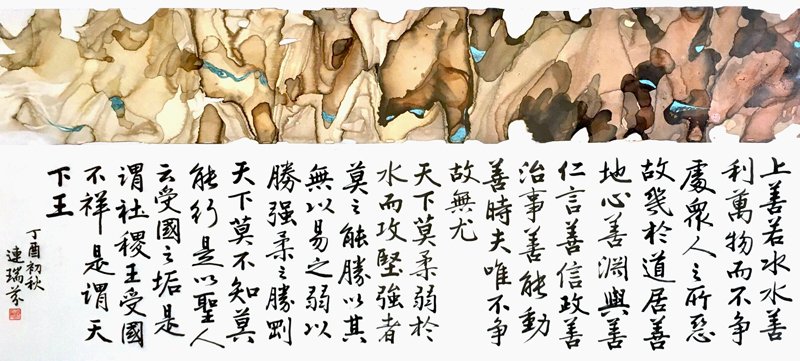 上善若水水善
利萬物而不争
處衆人之所惡
故幾於道居善
地心善淵與善
仁言善信政善
治事善能動
善時夫唯不争
故無尤
天下莫柔弱於
水而攻堅強者
莫之能勝以其
無以易之弱以
勝强柔之勝剛
天下莫不知莫
能行是以聖人
云受國之垢是
謂社稷王受國
不祥是謂天
下王
丁酉初秋
連瑞芬